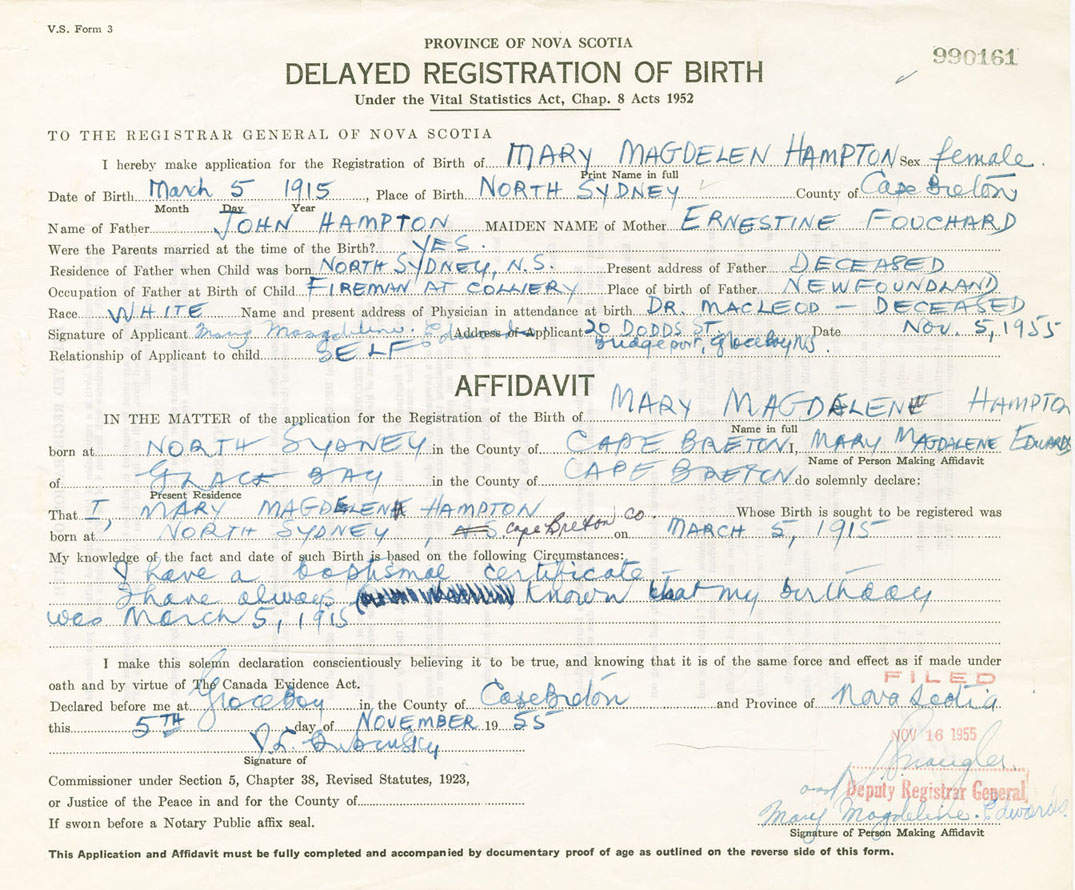 V.S. Form 3
PROVINCE OF NOVA SCOTIA
990161
DELAYED REGISTRATION OF BIRTH
Under the Vital Statistics Act, Chap. 8 Acts 1952
TO THE REGISTRAR GENERAL OF NOVA SCOTIA
I hereby make application for the Registration of Birth of MARY MAGDELEN HAMPTON Sex female.
Print Name in full
Date of Birth March 5 1915, Place of Birth NORTH SYDNEY County of Cape Breton
Month Day Year
Name of Father JOHN HAMPTON MAIDEN NAME of Mother ERNESTINE FOUCHARD
Were the Parents married at the time of the Birth? YES.
Residence of Father when Child was born NORTH SYDNEY, N.S. Present address of Father DECEASED
Occupation of Father at Birth of Child FIREMAN AT COLLIERY Place of birth of Father NEWFOUNDLAND
Race WHITE Name and present address of Physician in attendance at birth DR. MACLEOD — DECEASED
Signature of Applicant Mary Magdeline Edwards Address of Applicant 20 DODDS ST. Date NOV. 5, 1955
Bridgeport, Glace Bay NS.
Relationship of Applicant to child SELF
AFFIDAVIT
IN THE MATTER of the application for the Registration of the Birth of MARY MAGDALENE HAMPTON
Name in full
born at NORTH SYDNEY in the County of CAPE BRETON I, MARY MAGDALENE EDWARDS
Name of Person Making Affidavit
of GLACE BAY in the County of CAPE BRETON do solemnly declare:
Present Residence
That I, MARY MAGDELEN HAMPTON Whose Birth is sought to be registered was
born at NORTH SYDNEY, Cape Breton Co. on MARCH 5, 1915
My knowledge of the fact and date of such Birth is based on the following Circumstances:
I have a baptismal certificate —
I have always known that my birthday
was March 5, 1915
I make this solemn declaration conscientiously believing it to be true, and knowing that it is of the same force and effect as if made under
oath and by virtue of The Canada Evidence Act.
FILED
Declared before me at Glace Bay in the County of Cape Breton and Province of Nova Scotia
this 5TH day of NOVEMBER 1955
NOV 16 1955
Signature of
Commissioner under Section 5, Chapter 38, Revised Statutes, 1923,
or Justice of the Peace in and for the County of
Deputy Registrar General
Mary Magdeline Edwards
If sworn before a Notary Public affix seal.
Signature of Person Making Affidavit
This Application and Affidavit must be fully completed and accompanied by documentary proof of age as outlined on the reverse side of this form.